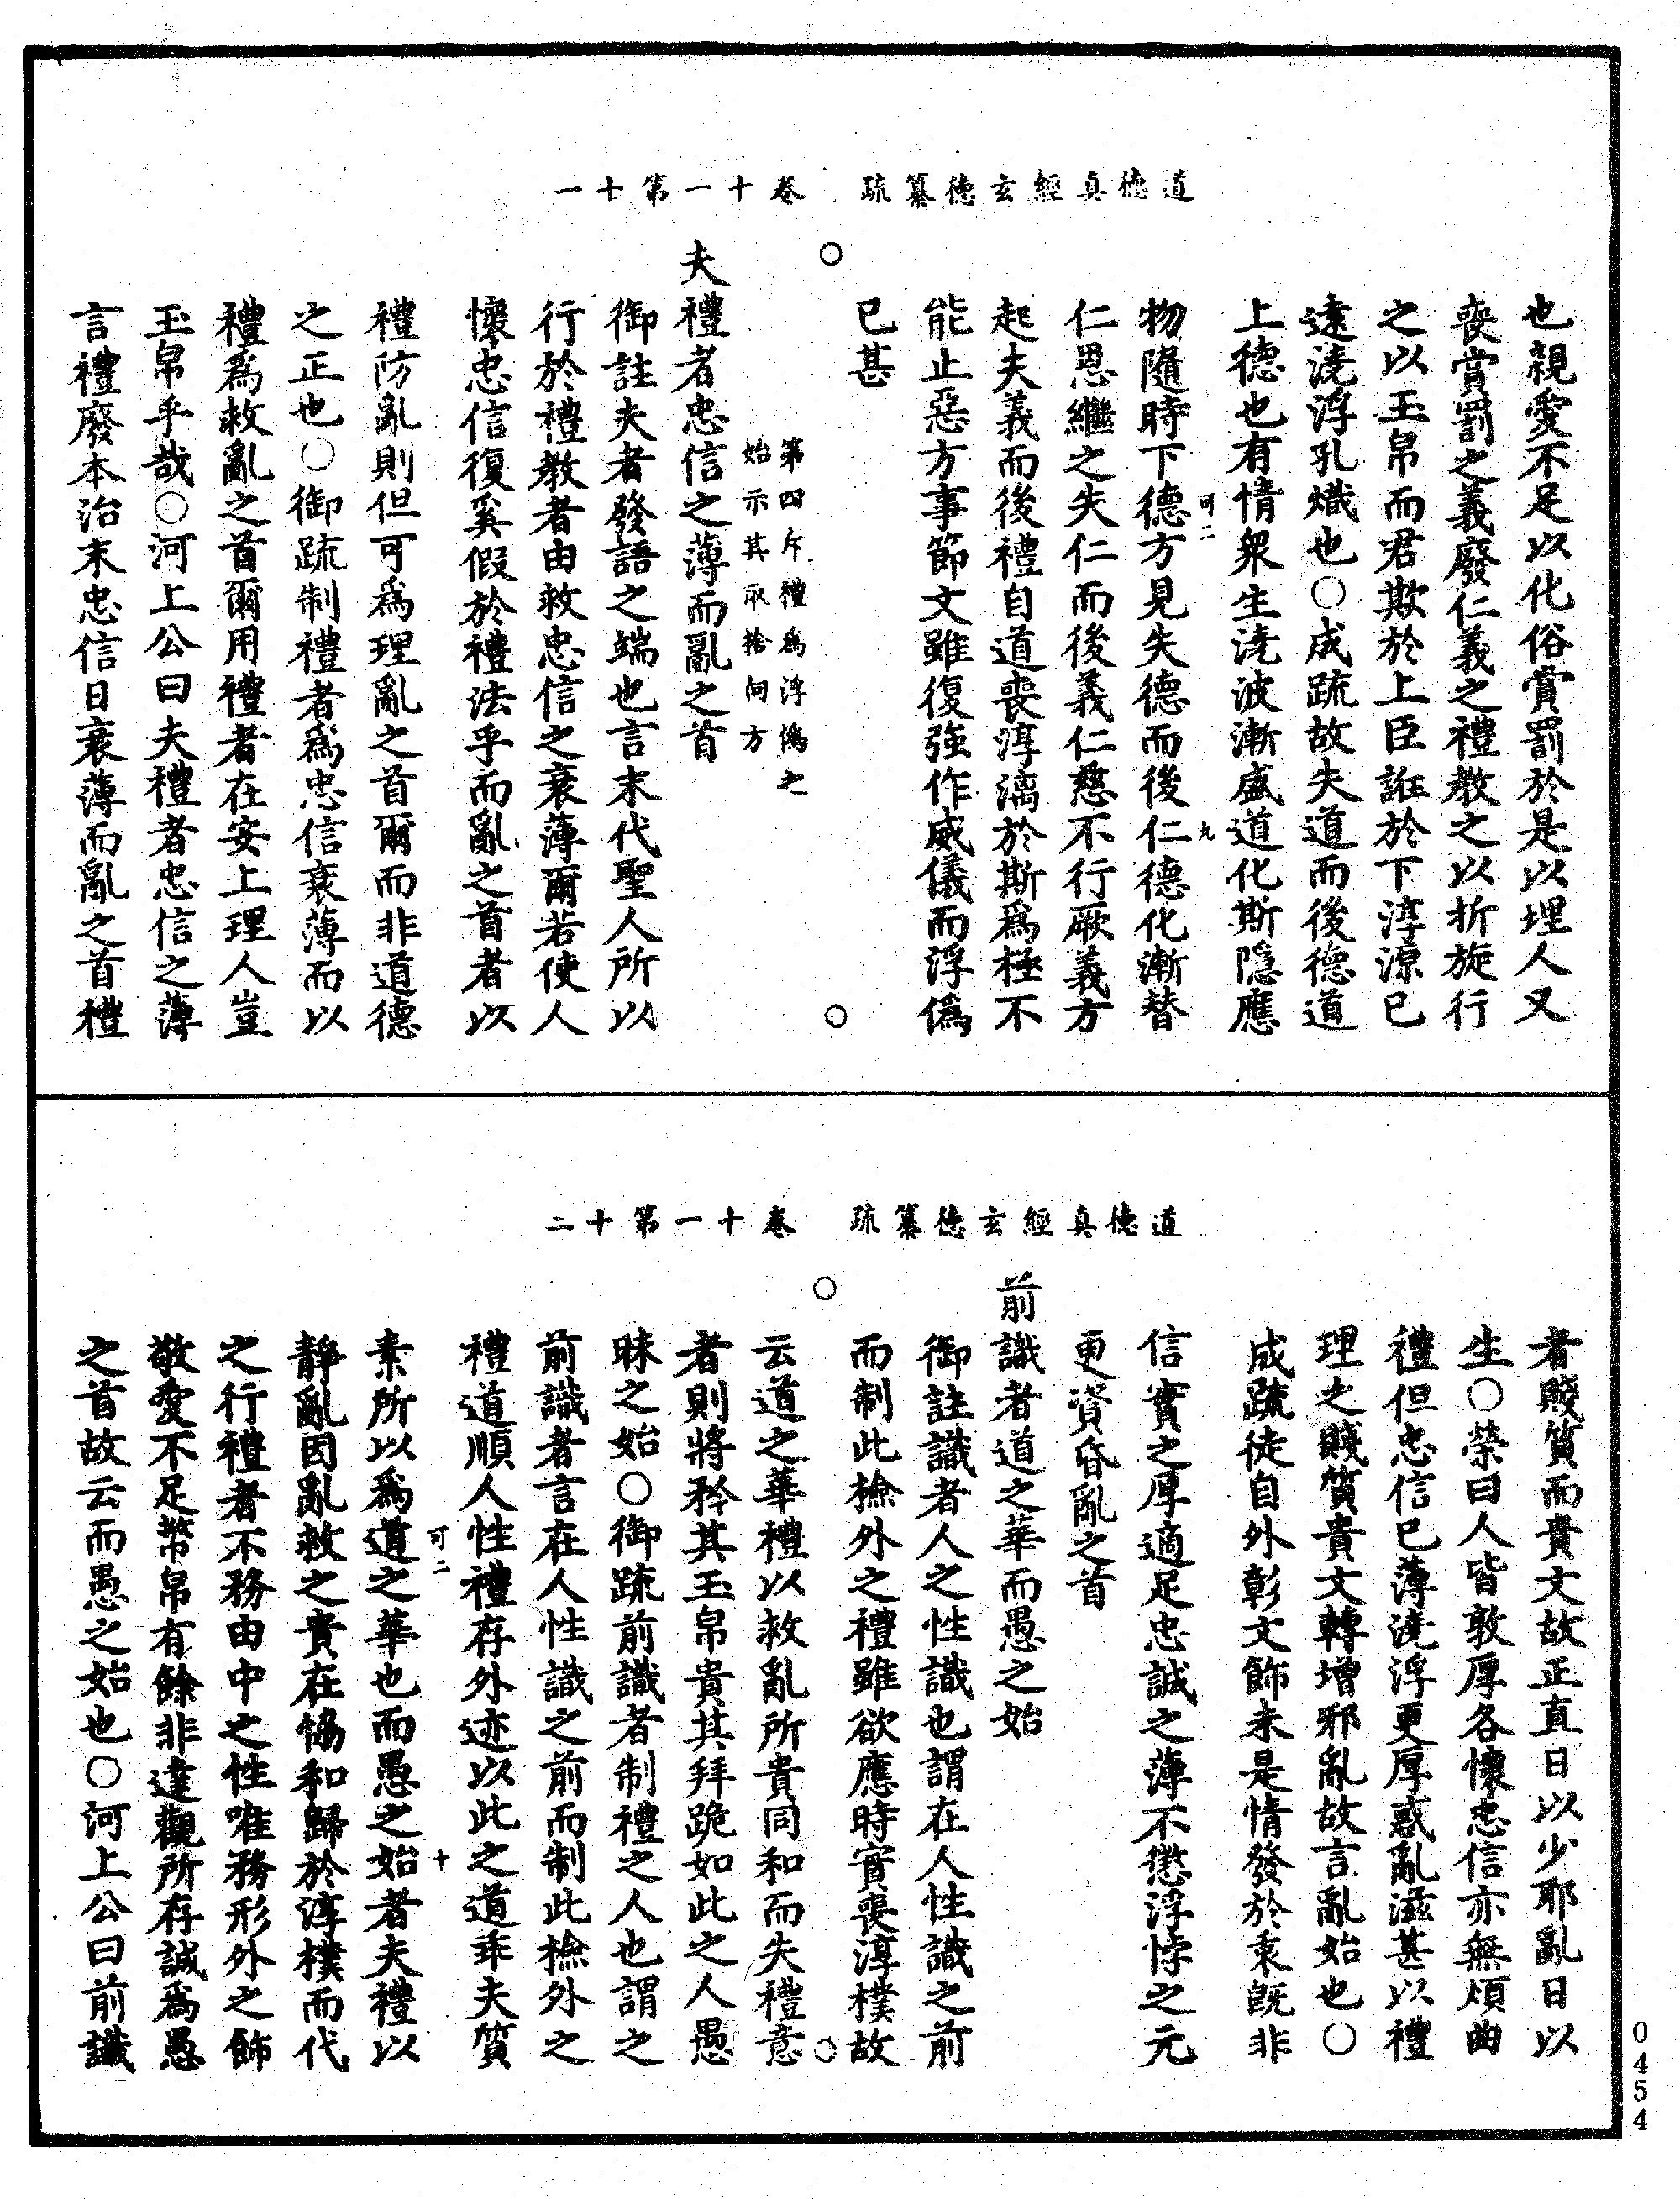 道德真經玄德纂疏　卷十一第十一
也親愛不足以化俗賞罰於是以理人又
喪賞罰之義廢仁義之禮教之以折旋行
之以玉帛而君欺於上臣誑於下淳源已
遠澆浮孔熾也○成疏故失道而後德道
上德也有情衆生澆波漸盛道化斯隱應
可二　九
物隨時下德方見失德而後仁德化漸替
仁恩繼之失仁而後義仁慈不行厥義方
起夫義而後禮自道喪淳漓於斯爲極不
能止惡方事節文雖復強作威儀而浮僞
已甚
第四斥禮爲浮僞之
始示其取捨何方
夫禮者忠信之薄而亂之首
御註夫者發語之端也言末代聖人所以
行於禮教者由救忠信之衰薄爾若使人
懷忠信復奚假於禮法乎而亂之首者以
禮防亂則但可爲理亂之首爾而非道德
之正也○御疏制禮者爲忠信衰薄而以
禮爲救亂之首爾用禮者在安上理人豈
玉帛乎哉○河上公曰夫禮者忠信之薄
言禮廢本治末忠信日衰薄而亂之首禮
道德真經玄德纂疏　卷十一第十二
者賤質而貴文故正直日以少耶亂日以
生○榮曰人皆敦厚各懷忠信亦無煩曲
禮但忠信已薄澆浮更厚惑亂滋甚以禮
理之賤質貴文轉增邪亂故言亂始也○
成疏徒自外彰文飾未是情發於衷旣非
信實之厚適足忠誠之薄不懲浮悖之元
更資昏亂之首
前識者道之華而愚之始
御註識者人之性識也謂在人性識之前
而制此撿外之禮雖欲應時實喪淳樸故
云道之華禮以救亂所貴同和而失禮意
者則將矜其玉帛貴其拜跪如此之人愚
昧之始○御疏前識者制禮之人也謂之
前識者言在人性識之前而制此撿外之
禮道順人性禮存外迹以此之道乖夫質
可二　十
素所以爲道之華也而愚之始者夫禮以
靜亂因亂救之實在恊和歸於淳樸而代
之行禮者不務由中之性唯務形外之飾
敬愛不足幣帛有餘非達觀所存誠爲愚
之首故云而愚之始也○河上公曰前識
0454